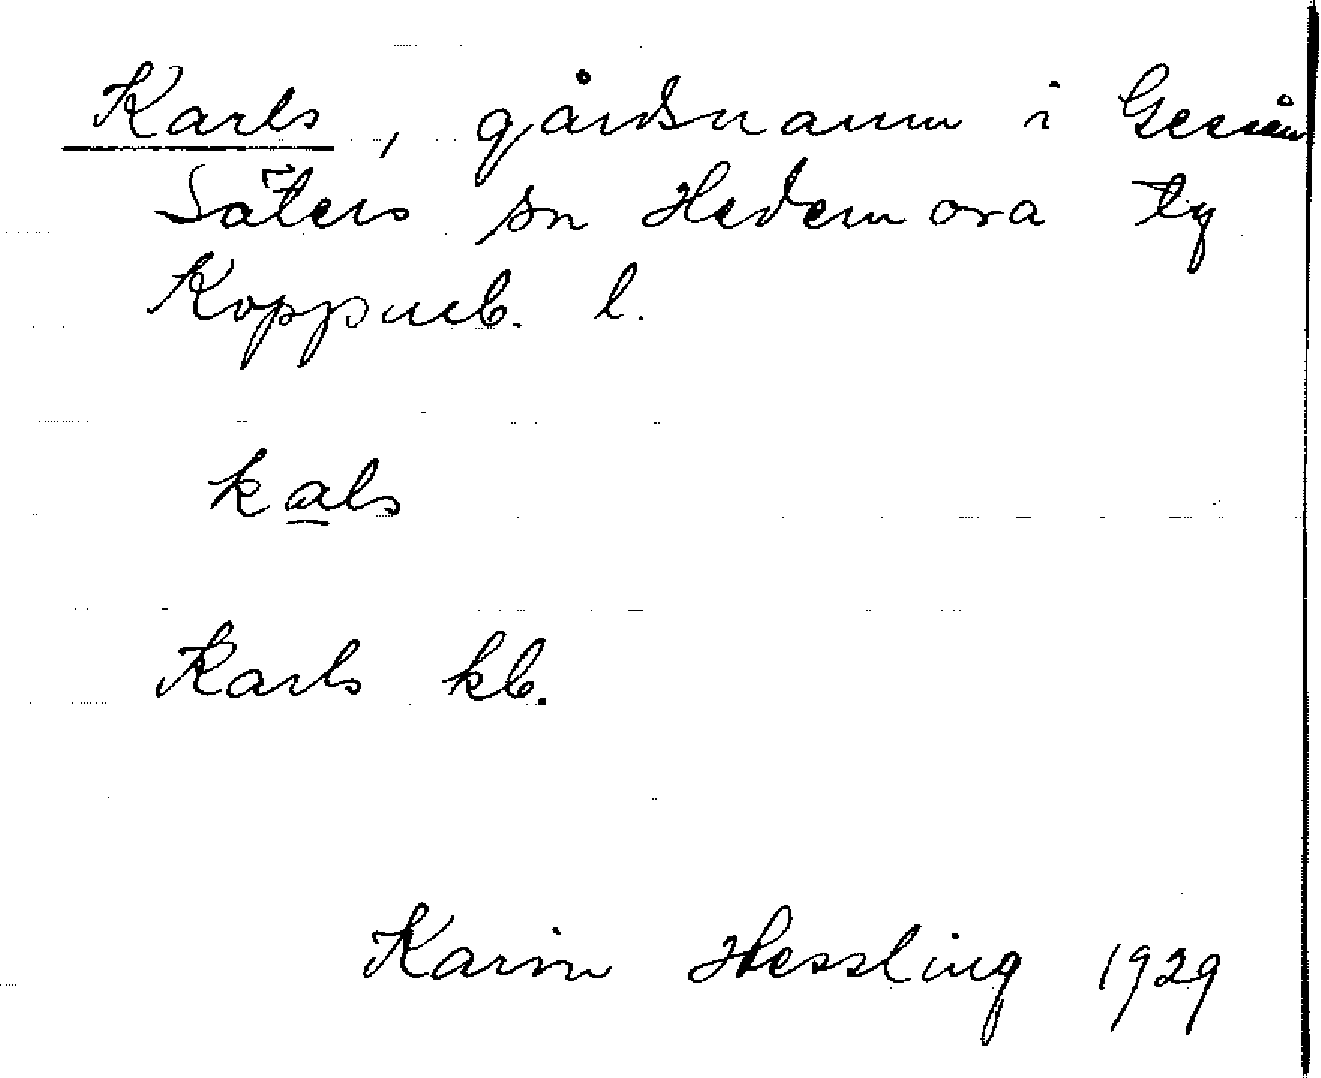 Karls, gårdsnamn i
Säters sn Hedemora tg
Kopparb. l.
kals
Karls kb.
Karin Hessling 1929